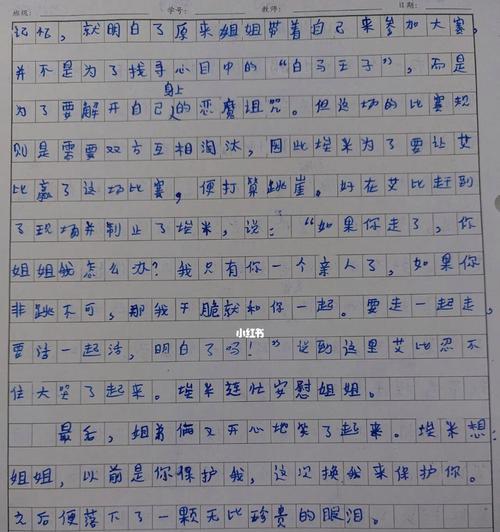 班级： 学号： 教师： 日期：
记忆，就明白了原来姐姐带着自己来参加大赛，
并不是为了找寻心目中的“白马王子”，而是
为了要解开自己身上的恋魔诅咒。但这场的比赛规
则是需要双方互相淘汰，因此埃米为了要让艾
比赢了这场比赛，便打算跳崖。好在艾比赶到
了现场并制止了埃米，说：“如果你走了，你
姐姐我怎么办？我只有你一个亲人了，如果你
非跳不可，那我干脆就和你一起。要走一起走，
要活一起活，明白了吗！”说到这里艾比忍不
住大哭了起来。埃米连忙安慰姐姐。
最后，姐弟俩又开心地笑了起来。埃米想：
姐姐，以前是你保护我，这次换我来保护你。
之后便落下了一颗无比珍贵的眼泪。
小红书